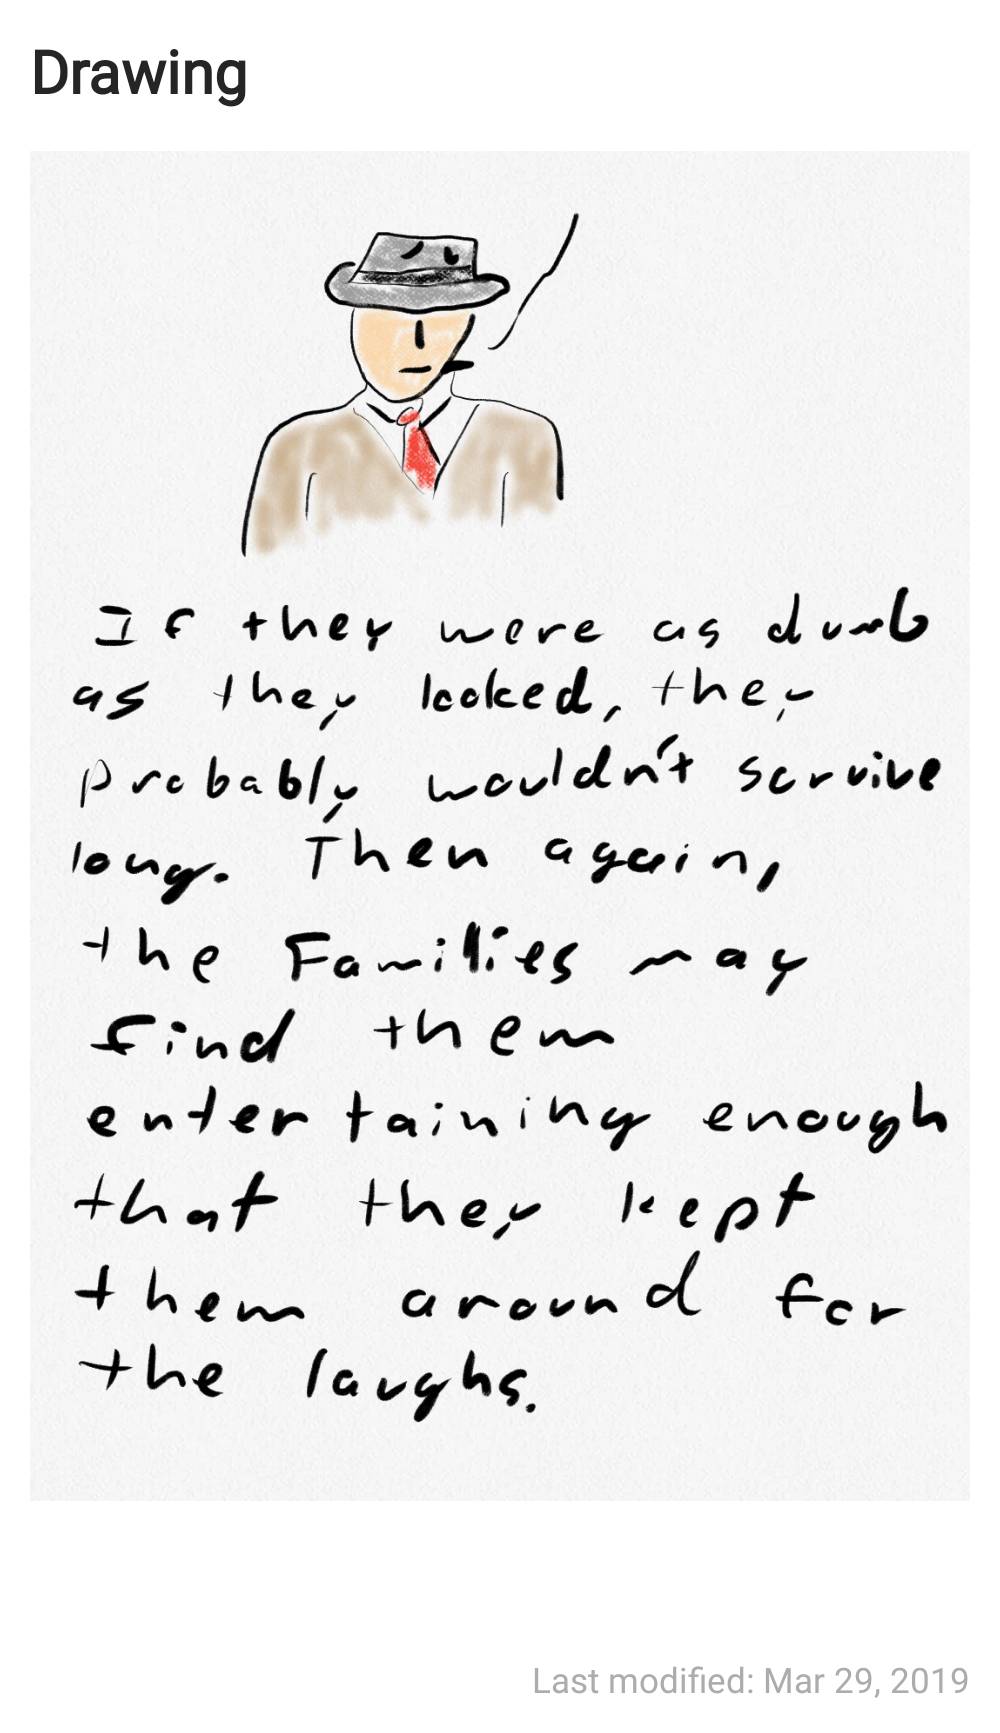 Drawing
If they were as dumb
as they looked, they
probably wouldn't survive
long. Then again,
the Families may
find them
entertaining enough
that they kept
them around for
the laughs.
Last modified: Mar 29, 2019